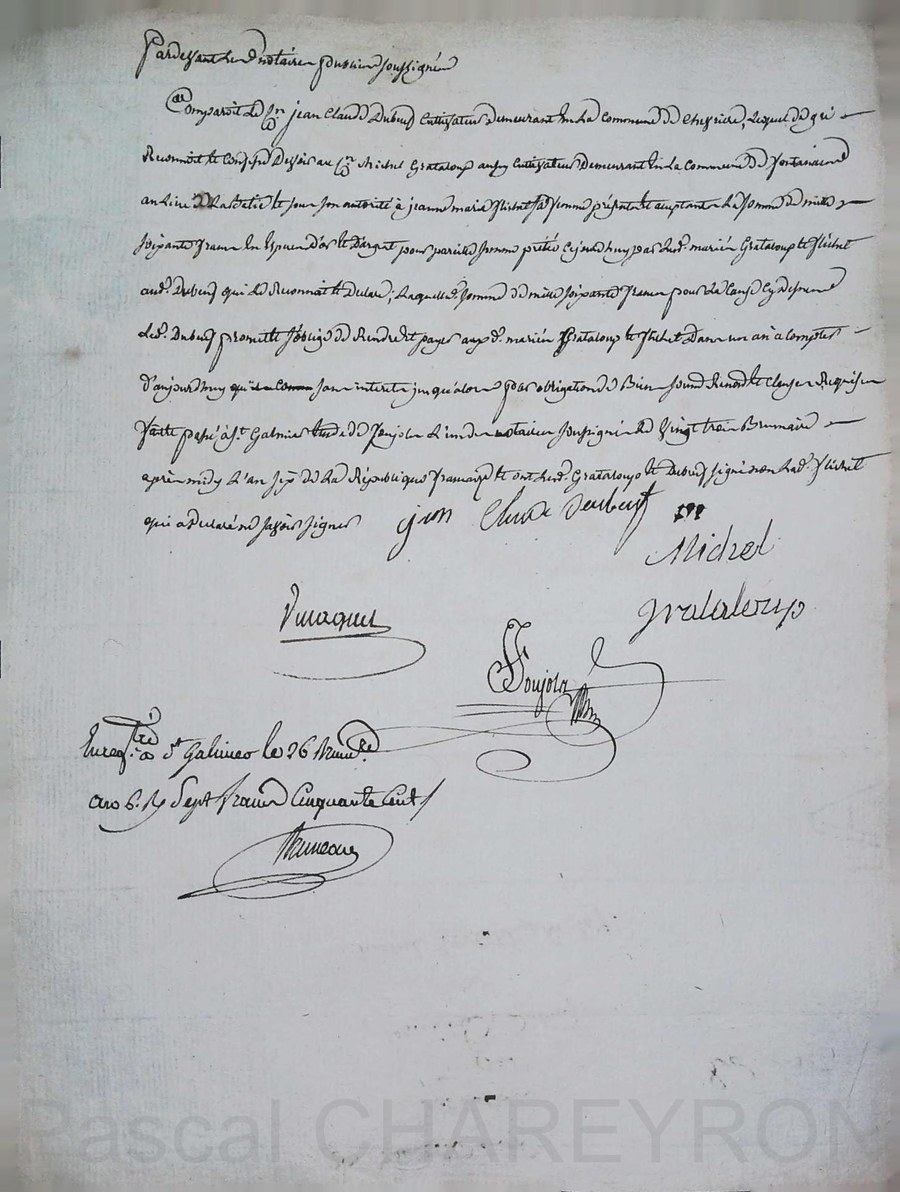 Pardevant les notaires publics soussignés
Comparoit le Cn jean Claude Dubeuf Cultivateur demeurant En La Commune de Chevriere, Lequel de gré
Reconnoit et Confesse Devoir au Cn Michel Grataloup aussy Cultivateur Demeurant En La Commune de Fontaneise
au Lieu de et sous son autorité à jeanne marie flichet sa femme présente et acceptante La somme de mille
soixante francs En Especes d'or et d'argent pour pareille somme prêtée cejourd'huy par Lesd. mariés Grataloup et flichet
aud. Dubeuf qui Le Reconnoit et Declare, Laquelle d. somme de mille soixante francs pour La Cause Cy dessus
Led. Dubeuf promet et s'oblige de Rendre et payer auxd. mariés Grataloup et flichet Dans un an à Compter
D'aujourd'huy sans interets jusqu'alors par obligation de Biens soumis Renond. et Clauses Requises
fait et passé à St Galmier Etude de Ponjola L'un des notaires soussigné Le Vingt trois Brumaire
après midy L'an six de La République francaise et ont Led. Grataloup et Dubeuf signé non Lad. flichet
qui a Declaré ne savoir signer
jean Claude Deubeuf
Michel
Grataloup
Ponjola
Enregtré à St Galmier le 26 Brumre
an 6. R. Sept francs Cinquante Cent
Bruneau
Pascal CHAREYRON